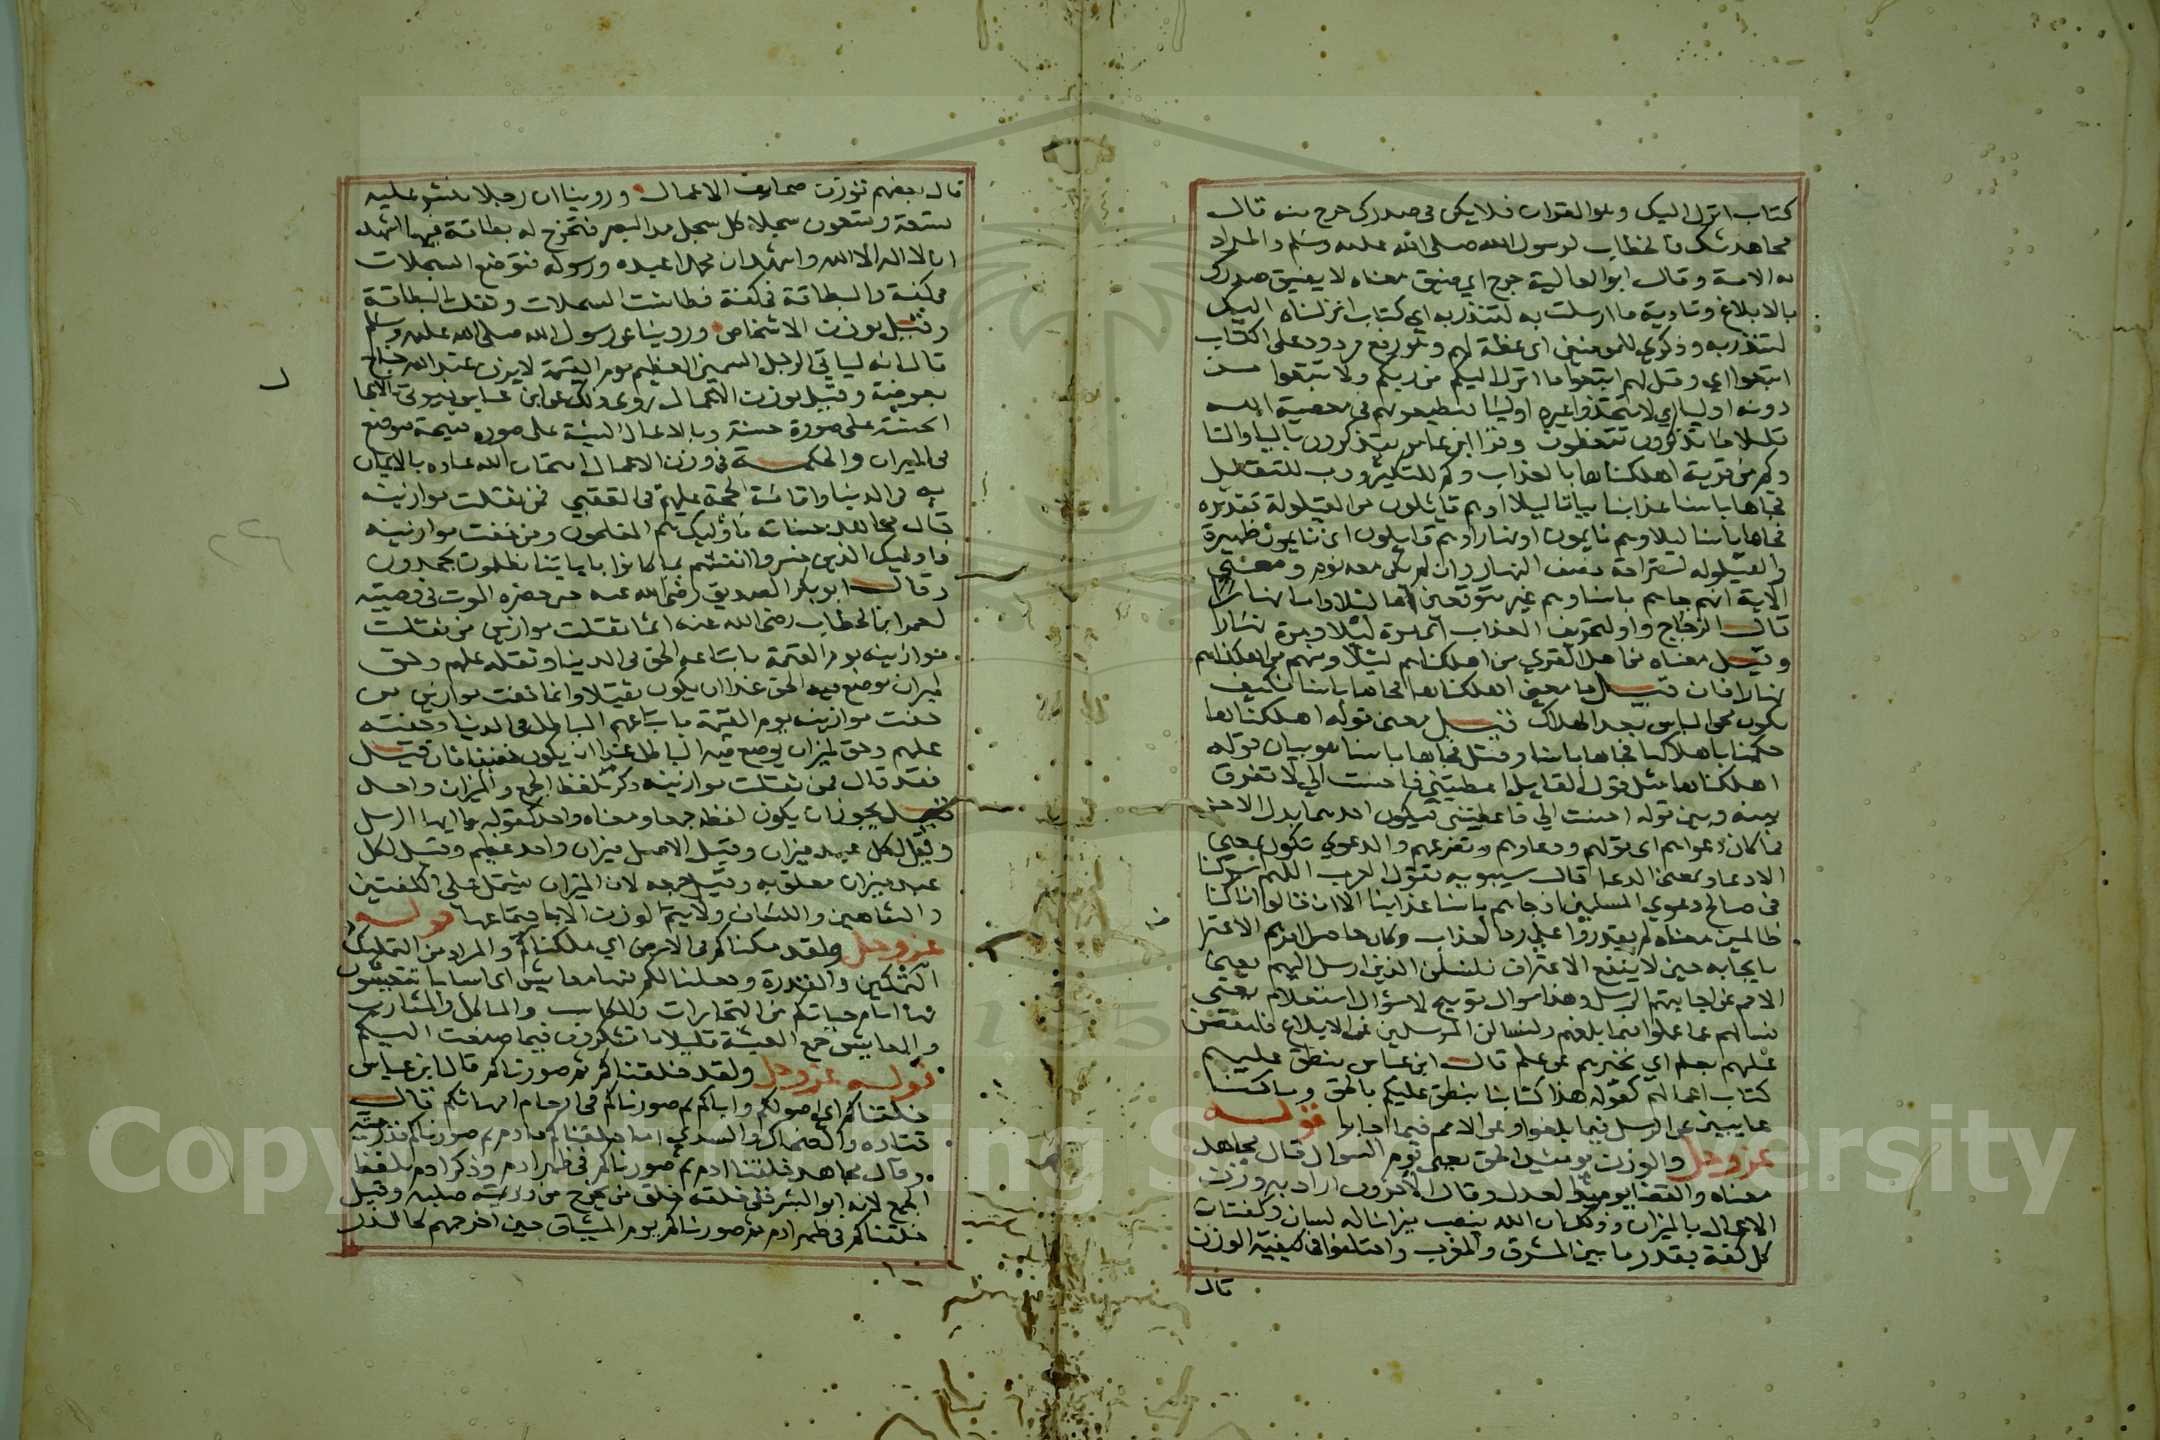 كتاب انزل اليك وهو القران فلا يكن في صدرك حرج منه قال
مجاهد شك فالخطاب لرسول الله صلى الله عليه وسلم والمراد
به الامة وقال ابو العالية حرج اي ضيق معناه لا يضيق صدرك
بالابلاغ وتادية ما ارسلت به لتنذر به اي كتاب انزلناه اليك
لتنذر به وذكري للمومنين اي عظة لهم وهو رفع مردود على الكتاب
اتبعوا اي وقل لهم اتبعوا ما انزل اليكم من ربكم ولا تتبعوا من
دونه اوليا اي لا تتخذوا غيره اوليا تطيعونهم في معصية الله
قليلا ما تذكرون تتعظون وقرا ابن عامر يتذكرون باليا والتا
وكم من قرية اهلكناها بالعذاب وكم للتكثير ورب للتقليل
فجاها باسنا عذابنا بياتا ليلا اوهم قائلون من القيلولة تقديره
فجاها باسنا ليلا وهم نايمون او نهارا وهم قايلون اي نايمون ظهيرة
والقيلولة استراحة نصف النهار وان لم يكن معه نوم ومعنى
الآية انهم جاهم باسنا وهم غير متوقعين اما ليلا واما نهارا
قال الزجاج واو لتصريف العذاب اي مرة ليلا ومرة نهارا
وقيل معناه من اهل القرى من اهلكناهم ليلا ومنهم من اهلكناهم
نهارا فان قيل ما معنى اهلكناها فجاها باسنا فكيف
يكون مجي الباس بعد الهلاك قيل معنى قوله اهلكناها
حكمنا باهلاكها فجاها باسنا وقيل فجاها باسنا هو بيان قوله
اهلكناها مثل قول القايل اعطيتني فاحسنت الي لا تفرق
بينه وبين قوله احسنت الي فاعطيتني فيكون احدهما بدل الاخر
فما كان دعواهم اي قولهم ودعاوهم وتضرعهم والدعوي تكون بمعنى
الادعا وبمعنى الدعا قال سيبويه تقول العرب اللهم اشركنا
في صالح دعوي المسلمين اذ جاهم باسنا عذابنا الا ان قالوا انا كنا
ظالمين معناه لم يقدروا على رد العذاب وكان حاصل امرهم الاعترا
بالجناية حين لا ينفع الاعتراف فلنسئلن الذين ارسل اليهم يعني
الامم عن اجابتهم الرسل وهذا سوال توبيخ لا سؤال استعلام يعني
نسالهم عما عملوا فيما بلغهم ولنسالن المرسلين عن الابلاغ فلنقصن
عليهم بعلم اي نخبرهم عن علم قال ابن عباس ينطق عليهم
كتاب اعمالهم كقوله هذا كتابنا ينطق عليكم بالحق وما كنا
غايبين عن الرسل فيما بلغوا وعن الامم فيما اجابوا قوله
عز وجل والوزن يومئذ الحق يعني يوم السوال قال مجاهد
معناه والقضا يومئذ العدل وقال الاخرون اراد به وزن
الاعمال بالميزان وذلك ان الله ينصب ميزانا له لسان وكفتان
كل كفة بقدر ما بين المشرق والمغرب واختلفوا في كيفية الوزن
قال
قال بعضهم توزن صحايف الاعمال وروينا ان رجلا ينشر عليه
تسعة وتسعون سجلا كل سجل مد البصر فتخرج له بطاقة فيها اشهد
ان لا اله الا الله واشهد ان محمدا عبده ورسوله فتوضع السجلات
في كفة والبطاقة في كفة فطاشت السجلات وثقلت البطاقة
وقيل توزن الاشخاص وروينا عن رسول الله صلى الله عليه وسلم
قال انه لياتي الرجل السمين العظيم يوم القيمة لا يزن عند الله جناح
بعوضة وقيل توزن الاعمال روي ذلك عن ابن عباس فيوتى بالاعما
الحسنة على صورة حسنة وبالاعمال السيئة على صورة قبيحة فتوضع
في الميزان والحكمة في وزن الاعمال امتحان الله عباده بالايمان
به في الدنيا واقامة الحجة عليهم في العقبي فمن ثقلت موازينه
قال مجاهد حسناته فاوليك هم المفلحون ومن خفت موازينه
فاوليك الذين خسروا انفسهم بما كانوا باياتنا يظلمون يجحدون
وقال ابو بكر الصديق رضي الله عنه حين حضره الموت في وصيته
لعمر ابن الخطاب رضى الله عنه انما ثقلت موازين من ثقلت
موازينه يوم القيمة باتباعهم الحق في الدنيا وثقله عليهم وحق
لميزان يوضع فيه الحق غدا ان يكون ثقيلا وانما خفت موازين من
خفت موازينه يوم القيمة باتباعهم الباطل في الدنيا وخفته
عليهم وحق لميزان يوضع فيه الباطل غدا ان يكون خفيفا فان قيل
فقد قال فمن ثقلت موازينه ذكر بلفظ الجمع والميزان واحد
قيل يجوز ان يكون لفظه جمعا ومعناه واحد كقوله يا ايها الرسل
وقيل لكل عبد ميزان وقيل الاصل ميزان واحد عظيم وقيل لكل
عبد ميزان معلق به وقيل جمعه لان الميزان يشتمل على الكفتين
والشاهين واللسان ولا يتم الوزن الا باجتماعها قوله
عز وجل ولقد مكناكم في الارض اي ملكناكم والمراد من التمليك
التمكين والقدرة وجعلنا لكم فيها معايش اي اسبابا تتعيشون
بها ايام حياتكم من التجارات والمكاسب والماكل والمشارب
والمعايش جمع المعيشة قليلا ما تشكرون فيما صنعت اليكم
قوله عز وجل ولقد خلقناكم ثم صورناكم قال ابن عباس
خلقناكم اي اصولكم واباكم ثم صورناكم في ارحام امهاتكم قال
قتاده والضحاك والسدي اما خلقناكم فادم ثم صورناكم فذريته
وقال مجاهد خلقنا ادم ثم صورناكم في ظهر ادم وذكر ادم بلفظ
الجمع لانه ابو البشر ففي خلقه خلق من يخرج من صلبه وقيل
خلقناكم في ظهر ادم ثم صورناكم يوم الميثاق حين اخرجهم كالذر
Copyright © King Saud University
1957